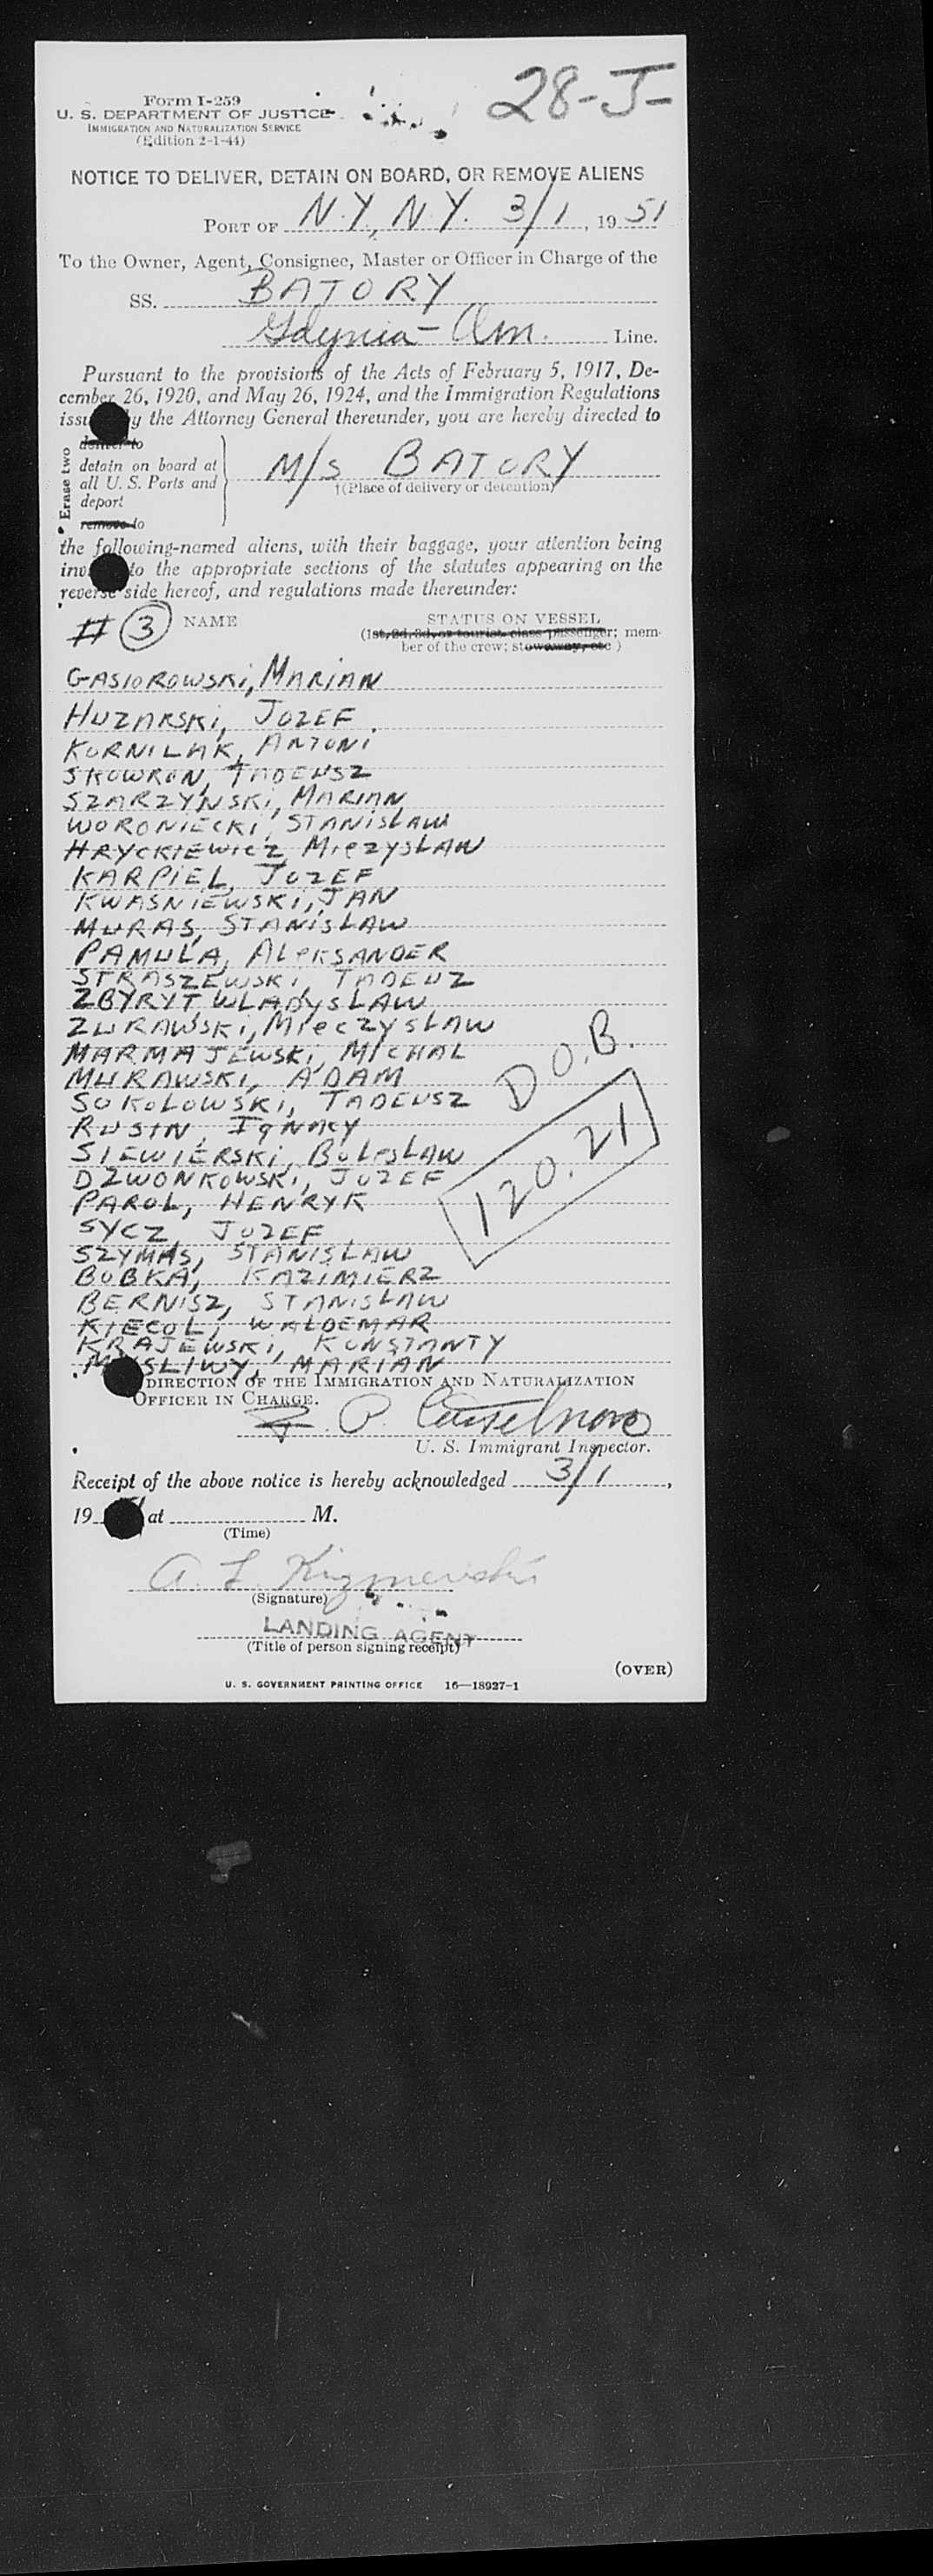 28-J-
Form I-259
U. S. DEPARTMENT OF JUSTICE
IMMIGRATION AND NATURALIZATION SERVICE
(Edition 2-1-44)
NOTICE TO DELIVER, DETAIN ON BOARD, OR REMOVE ALIENS
PORT OF N.Y, N.Y. 3/1, 19 51
To the Owner, Agent, Consignee, Master or Officer in Charge of the
SS. BATORY
Gdynia-Am. Line.
Pursuant to the provisions of the Acts of February 5, 1917, De-
cember 26, 1920, and May 26, 1924, and the Immigration Regulations
iss y the Attorney General thereunder, you are hereby directed to
* Erase two
deliver to
detain on board at
all U. S. Ports and
deport
remove to
M/S BATORY
†(Place of delivery or detention)
the following-named aliens, with their baggage, your attention being
inv to the appropriate sections of the statutes appearing on the
reverse side hereof, and regulations made thereunder:
# 3 NAME STATUS ON VESSEL
(1st, 2d, 3d, or tourist class passenger; mem-
ber of the crew; stowaway, etc.)
GASIOROWSKI, MARIAN
HUZARSKI, JOZEF
KORNILAK, ANTONI
SKOWRON, TADEUSZ
SZARZYNSKI, MARIAN
WORONIECKI, STANISLAW
HRYCKIEWICZ, MIECZYSLAW
KARPIEL, JOZEF
KWASNIEWSKI, JAN
MURAS, STANISLAW
PAMULA, ALEKSANDER
STRASZEWSKI, TADEUZ
ZBYRYT WLADYSLAW
ZURAWSKI, MIECZYSLAW
MARMAJEWSKI, MICHAL
MURAWSKI, ADAM
SOKOLOWSKI, TADEUSZ
RUSIN, IGNACY
SIEWIERSKI, BOLESLAW
DZWONKOWSKI, JOZEF
PAROL, HENRYK
SYCZ, JOZEF
SZYMAS, STANISLAW
BOBKA, KAZIMIERZ
BERNISZ, STANISLAW
KIECOL, WALDEMAR
KRAJEWSKI, KONSTANTY
MYSLIWY, MARIAN
D.O.B.
120.21
DIRECTION OF THE IMMIGRATION AND NATURALIZATION
OFFICER IN CHARGE.
U. S. Immigrant Inspector.
Receipt of the above notice is hereby acknowledged 3/1,
19 at M.
(Time)
(Signature)
LANDING AGENT
(Title of person signing receipt)
(OVER)
U. S. GOVERNMENT PRINTING OFFICE 16—18927-1